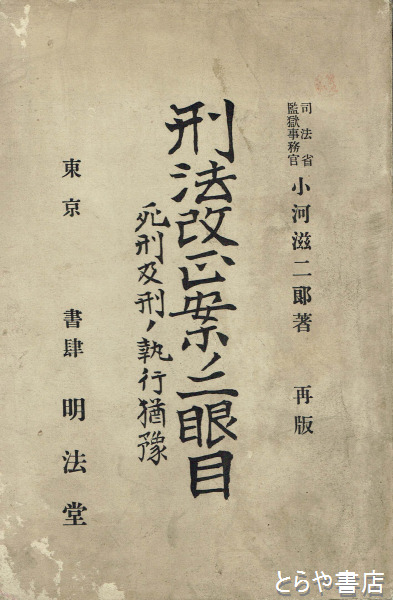 司法省
監獄事務官
小河滋二郎著 再版
刑法改正案ノ二眼目
死刑及刑ノ執行猶豫
東京 書肆 明法堂
とらや書店